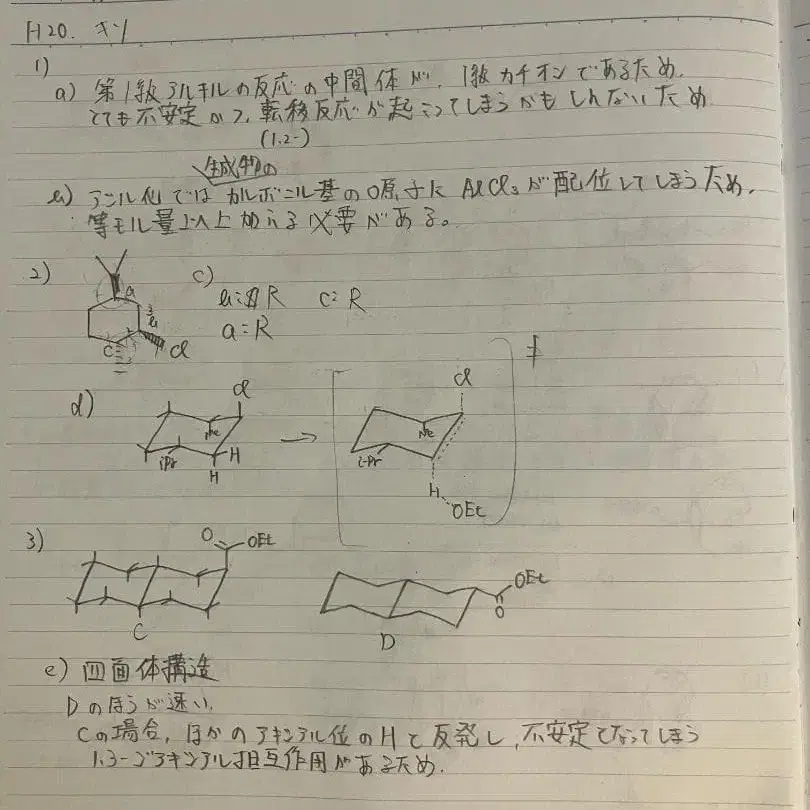 H20. キソ
1)
a) 第1級アルキルの反応の中間体が、1級カチオンであるため、
とても不安定かつ、転移反応が起こってしまうかもしんないため
(1,2-)
生成物の
b) アシル化ではカルボニル基のO原子にAlCl3が配位してしまうため、
等モル量以上加える必要がある。
2)
a
b
c
Cl
c)
b= R c= R
a= R
d)
Cl
Me
iPr
H
H
→
Cl
Me
i-Pr
H
OEt
‡
3)
O
OEt
C
OEt
O
D
e) 四面体構造
Dのほうが速い、
Cの場合、ほかのアキシアル位のHと反発し、不安定となってしまう
1,3-ジアキシアル相互作用があるため、